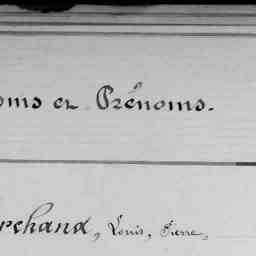 oms et Prénoms.
rchand, Louis, Pierre,